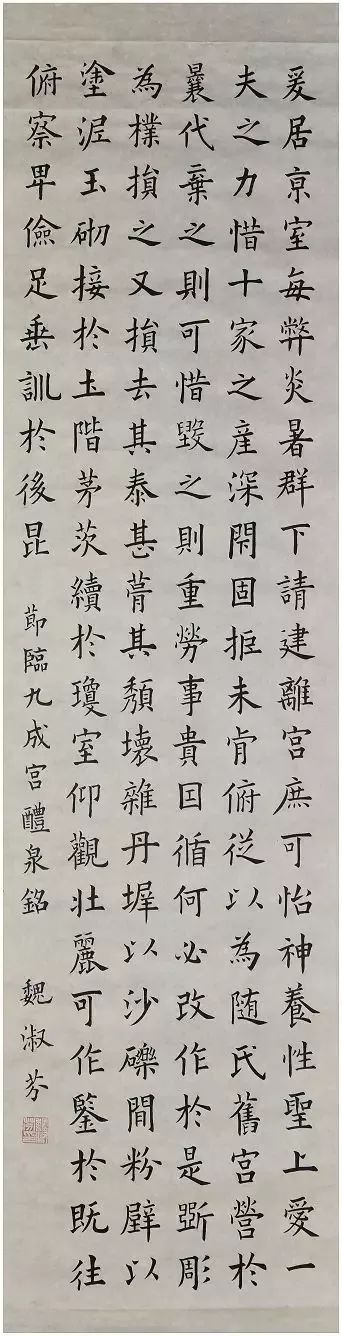 爰居京室每弊炎暑群下請建離宮庶可怡神養性聖上愛一
夫之力惜十家之產深閉固拒未肯俯從以為隨氏舊宮營於
曩代棄之則可惜毀之則重勞事貴因循何必改作於是斲彫
為樸損之又損去其泰甚葺其頹壞雜丹墀以沙礫間粉壁以
塗泥玉砌接於土階茅茨續於瓊室仰觀壯麗可作鑒於既往
俯察卑儉足垂訓於後昆 節臨九成宮醴泉銘 魏淑芬